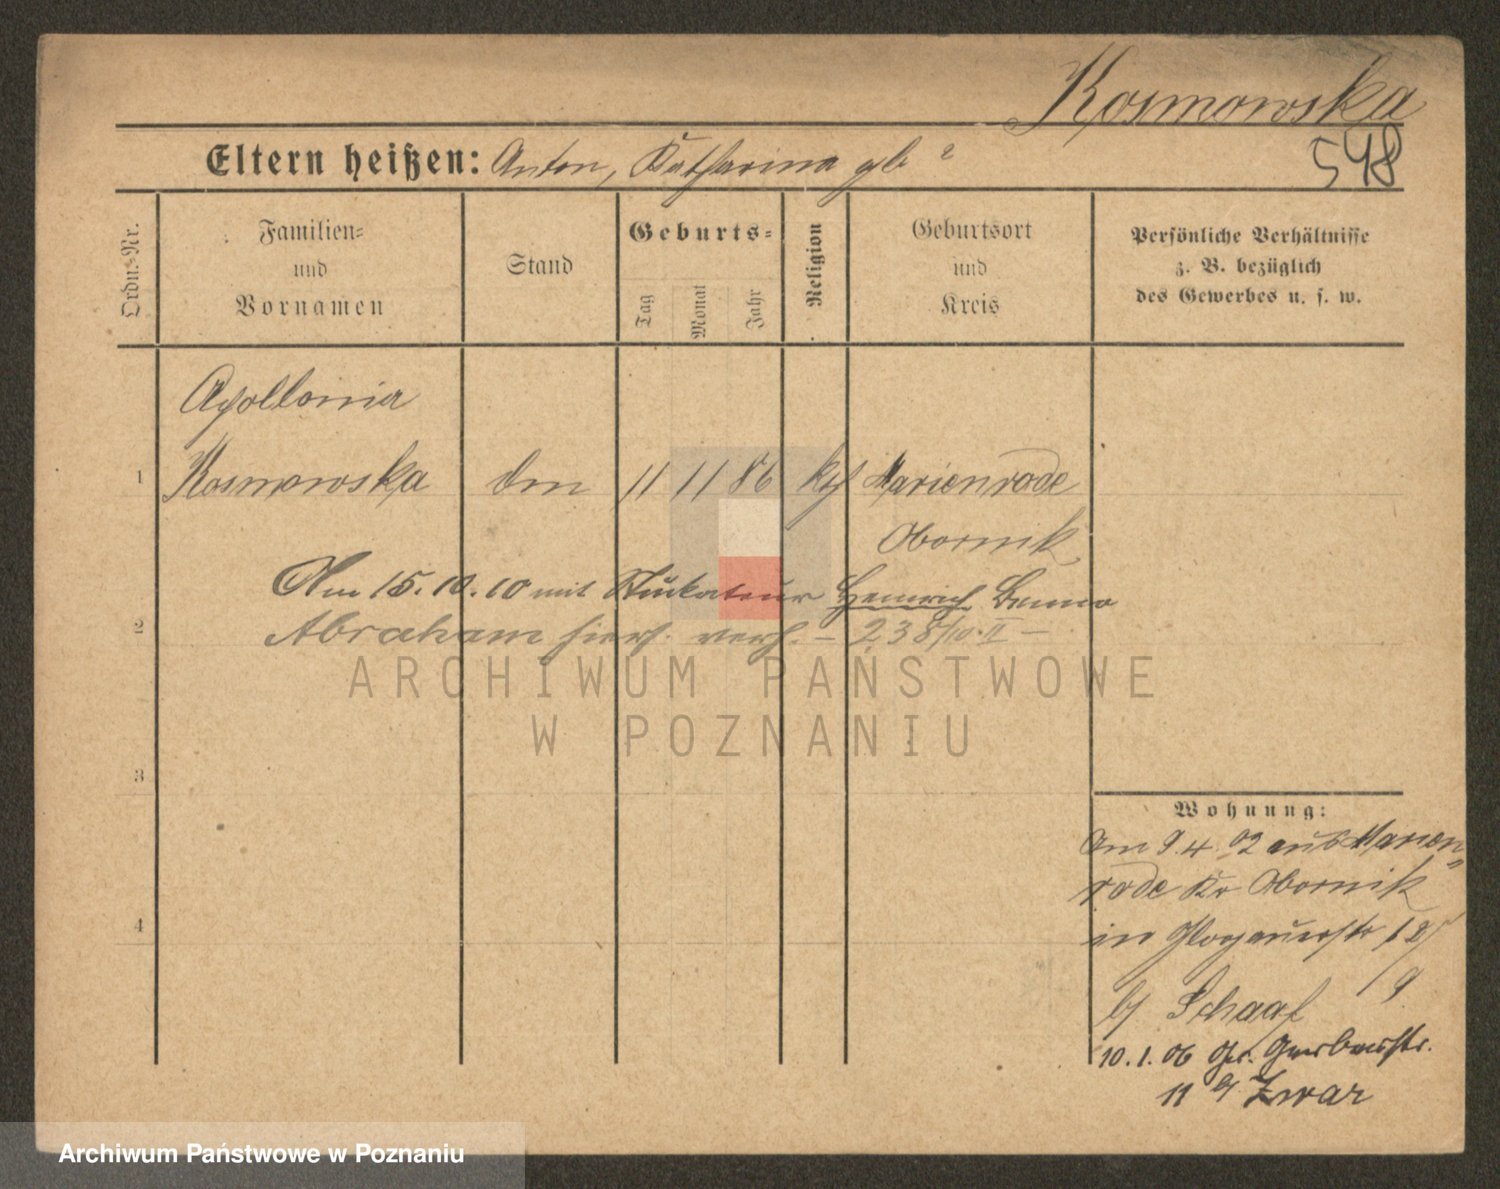 Kosmowska
548
Eltern heißen: Anton, Katharina gb ?
Ordn.-Nr.
Familien-
und
Vornamen
Stand
Geburts-
Tag
Monat
Jahr
Religion
Geburtsort
und
Kreis
Persönliche Verhältnisse
z. B. bezüglich
des Gewerbes u. s. w.
Apollonia
1 Kosmowska 11 11 86 kth Marienrode
Obornik
Am 15.10.10 mit Stuckateur Heinrich Benno
2 Abraham hiers. verh. – 238/10 II –
ARCHIWUM PAŃSTWOWE
W POZNANIU
3
Wohnung:
Am 9.4.02 aus Marien-
rode Kr Obornik
4
in Glogauerstr
b/ Schaaf
10.1.06 Gr. Gerberstr.
11 b/ Zwar
Archiwum Państwowe w Poznaniu